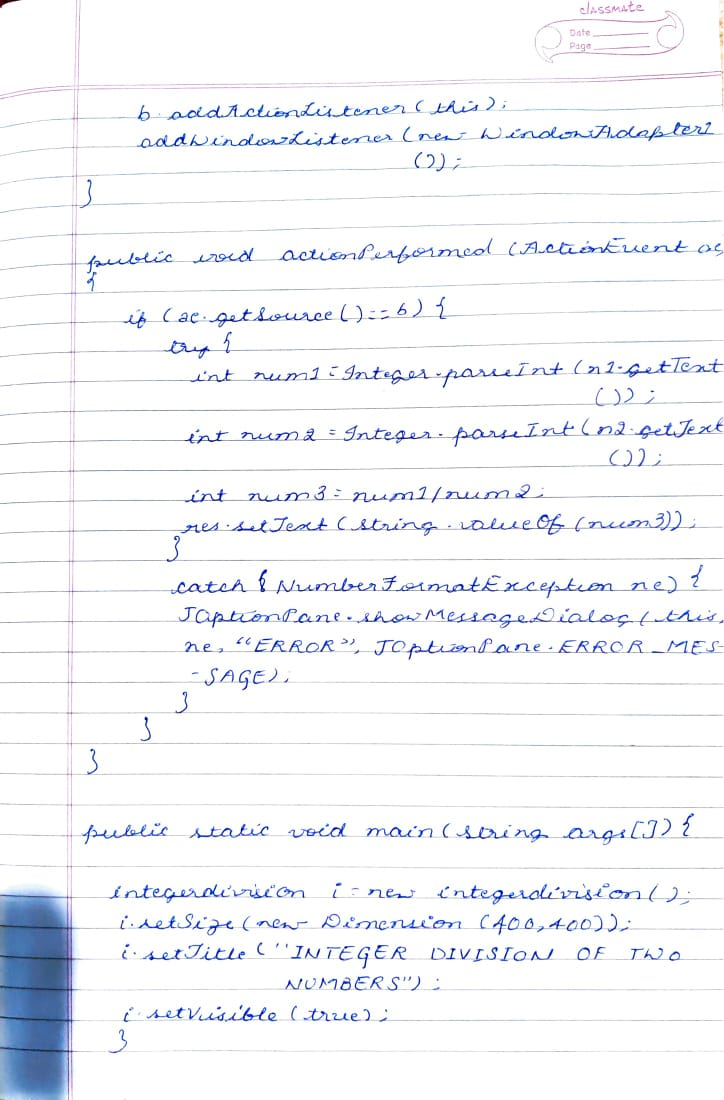 classmate
Date
Page
b.addActionListener(this);
addWindowListener(new WindowAdapter1
());
}
public void actionPerformed (ActionEvent ae
{
if (ae.getSource()==b) {
try {
int num1=Integer.parseInt(n1.getText
());
int num2=Integer.parseInt(n2.getText
());
int num3=num1/num2;
res.setText(string.valueOf(num3));
}
catch { NumberFormatException ne) {
JOptionPane.showMessageDialog(this,
ne, "ERROR", JOptionPane.ERROR_MES-
-SAGE);
}
}
}
public static void main(string args[]) {
integerdivision i=new integerdivision();
i.setSize(new Dimension (400,400));
i.setTitle("INTEGER DIVISION OF TWO
NUMBERS");
i.setVisible(true);
}